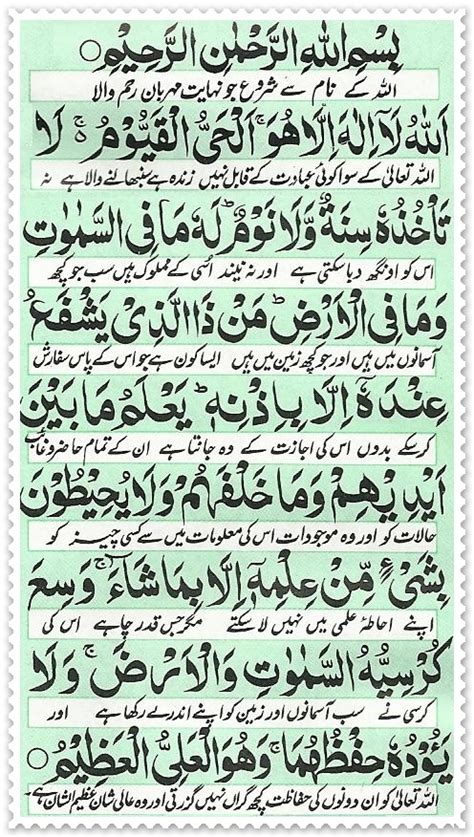 بِسْمِ اللهِ الرَّحْمٰنِ الرَّحِيْمِ ○
اللہ کے نام سے شروع جو نہایت مہربان رحم والا
اَللهُ لَاۤ اِلٰهَ اِلَّا هُوَ ۚ اَلْحَيُّ الْقَيُّوْمُ ۚ لَا
اللہ تعالیٰ کے سوا کوئی عبادت کے قابل نہیں زندہ ہے سنبھالنے والا ہے نہ
تَاْخُذُهٗ سِنَةٌ وَّلَا نَوْمٌ ؕ لَهٗ مَا فِي السَّمٰوٰتِ
اس کو اونگھ دبا سکتی ہے اور نہ نیند اسی کے مملوک ہیں سب جو کچھ
وَمَا فِي الْاَرْضِ ؕ مَنْ ذَا الَّذِيْ يَشْفَعُ
آسمانوں میں ہیں اور جو کچھ زمین میں ہیں ایسا کون ہے جو اس کے پاس سفارش
عِنْدَهٗۤ اِلَّا بِاِذْنِهٖ ؕ يَعْلَمُ مَا بَيْنَ
کر سکے بدوں اس کی اجازت کے وہ جانتا ہے ان کے تمام حاضر و غائب
اَيْدِيْهِمْ وَمَا خَلْفَهُمْ وَلَا يُحِيْطُوْنَ
حالات کو اور وہ موجودات اس کی معلومات میں سے کسی چیز کو
بِشَيْءٍ مِّنْ عِلْمِهٖۤ اِلَّا بِمَا شَآءَ ۚ وَسِعَ
اپنے احاطۂ علمی میں نہیں لا سکتے مگر جس قدر چاہے اس کی
كُرْسِيُّهُ السَّمٰوٰتِ وَالْاَرْضَ ۚ وَلَا
کرسی نے سب آسمانوں اور زمین کو اپنے اندر لے رکھا ہے اور
يَـُٔوْدُهٗ حِفْظُهُمَا ۚ وَهُوَ الْعَلِيُّ الْعَظِيْمُ ○
اللہ تعالیٰ کو ان دونوں کی حفاظت کچھ گراں نہیں گزرتی اور وہ عالی شان عظیم الشان ہے۔